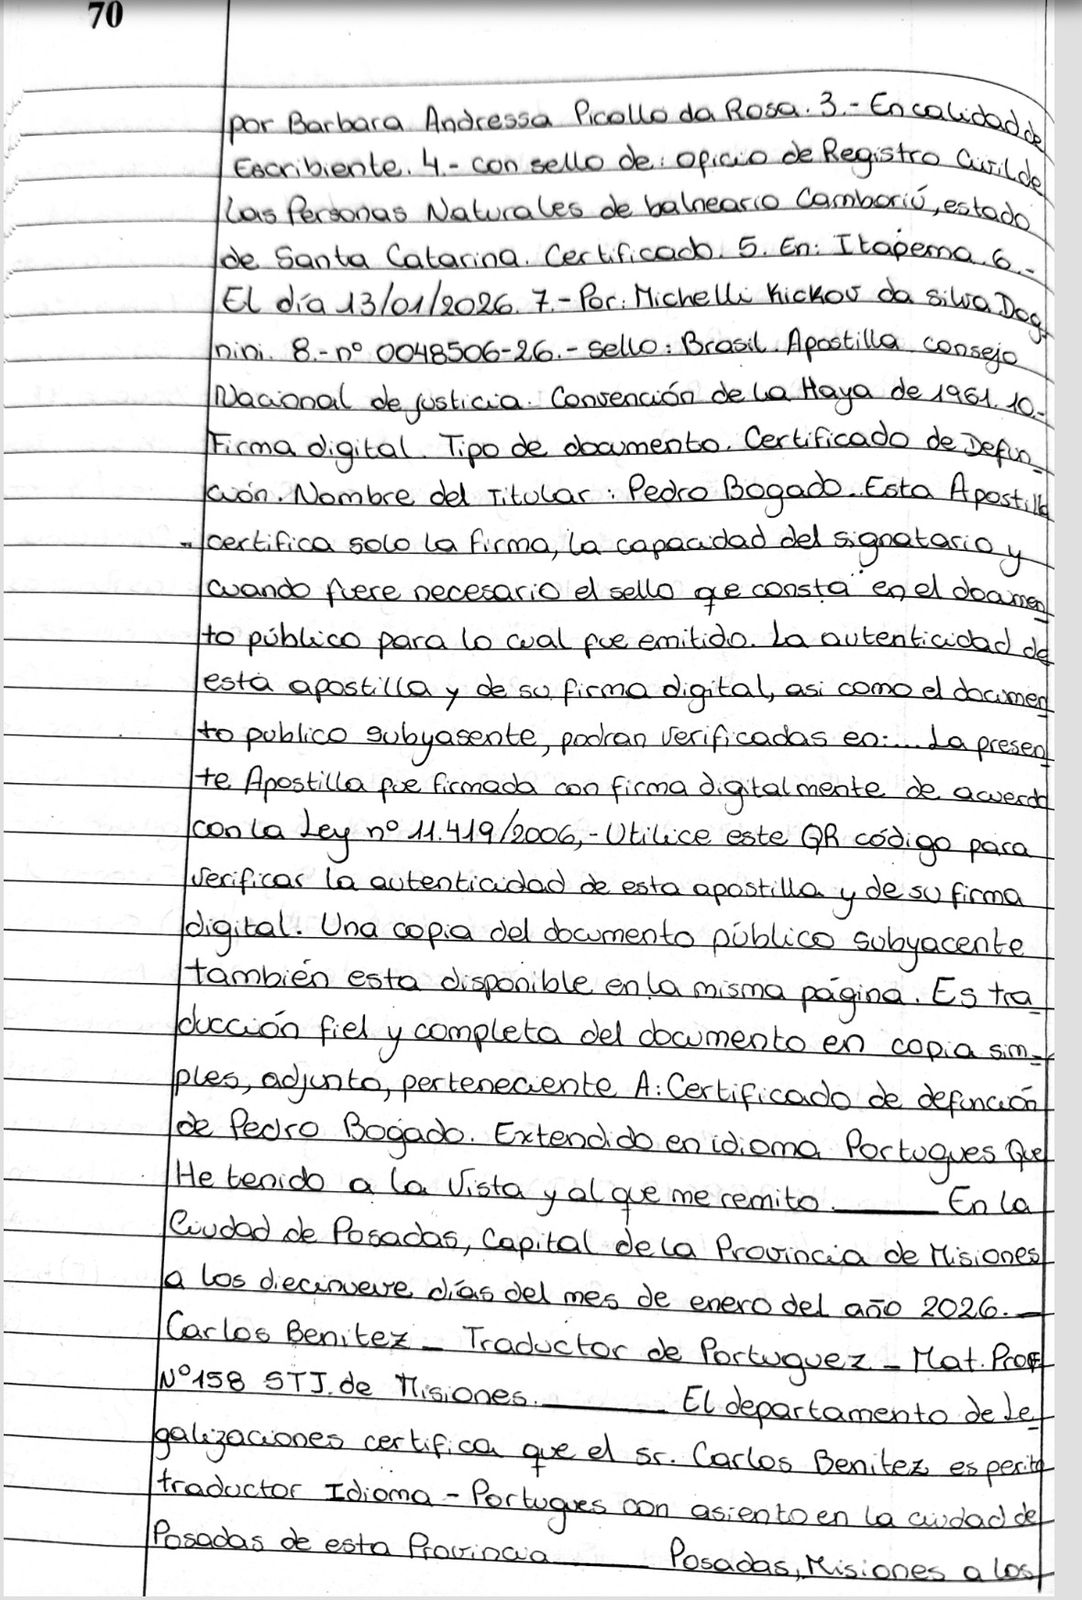 70
por Barbara Andressa Picollo da Rosa. 3.- En calidad de
Escribiente. 4.- con sello de: oficio de Registro Civil de
Las Personas Naturales de balneario Camboriú, estado
de Santa Catarina. Certificado. 5. En: Itapema. 6.-
El día 13/01/2026. 7.- Por: Michelli Kickov da Silva Dog
nini. 8.- nº 0048506-26.- sello: Brasil. Apostilla. consejo
Nacional de justicia. Convención de La Haya de 1961. 10.-
Firma digital. Tipo de documento. Certificado de Defun_
ción. Nombre del Titular: Pedro Bogado. Esta Apostilla
certifica solo la firma, la capacidad del signatario y
cuando fuere necesario el sello que consta en el documen
to público para lo cual fue emitido. La autenticidad de
esta apostilla y de su firma digital, asi como el documen
to publico subyasente, podran verificadas en:... La presen
te Apostilla fue firmada con firma digitalmente de acuerdo
con la Ley nº 11.419/2006,- Utilice este QR código para
verificar la autenticidad de esta apostilla y de su firma
digital. Una copia del documento público subyacente
también esta disponible en la misma página. Es tra_
ducción fiel y completa del documento en copia sim_
ples, adjunto, perteneciente A: Certificado de defunción
de Pedro Bogado. Extendido en idioma Portugues Que
He tenido a la vista y al que me remito. ____ En la
Ciudad de Posadas, Capital de la Provincia de Misiones
a los diecinueve días del mes de enero del año 2026. _
Carlos Benitez _ Traductor de Portuguez _ Mat. Prof
Nº 158 STJ. de Misiones. ____ El departamento de Le_
galizaciones certifica que el sr. Carlos Benitez es perito
traductor Idioma - Portugues con asiento en la ciudad de
Posadas de esta Provincia ____ Posadas, Misiones a los